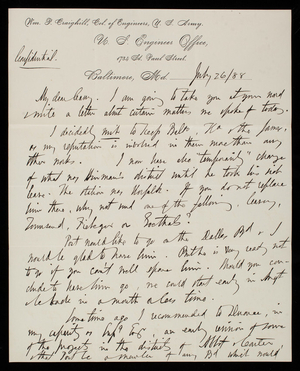 Wm. P. Craighill, Col. of Engineers, U. S. Army.
U. S. Engineer Office,
1725 St. Paul Street.
Confidential.
Baltimore, Md July 26/88
My dear Casey, I am going to take you at your word
& write a letter about certain matters we spoke of today.
I decidedly not to keep Balto, and the James,
as my reputation is involved in them more than any
other works. I now have also temporary charge
of what was Hinman's district until he took his sick
leave. The station was Norfolk. If you do not replace
him there, why not send one of the following,
Townsend, Fiebeger or Goethals?
Post would like to go on the Dalles Bd & I
would be glad to have him. But he is very ready not
to go if you can't well spare him. Should you con-
clude to have him go, we could start early in Augt
& be back in a month or less time.
Some time ago I recommended to Duane, in
my capacity as Engr, an early revision of some
of the projects in the districts of Abbot & Carter
& that Post be a member of any Bd which would